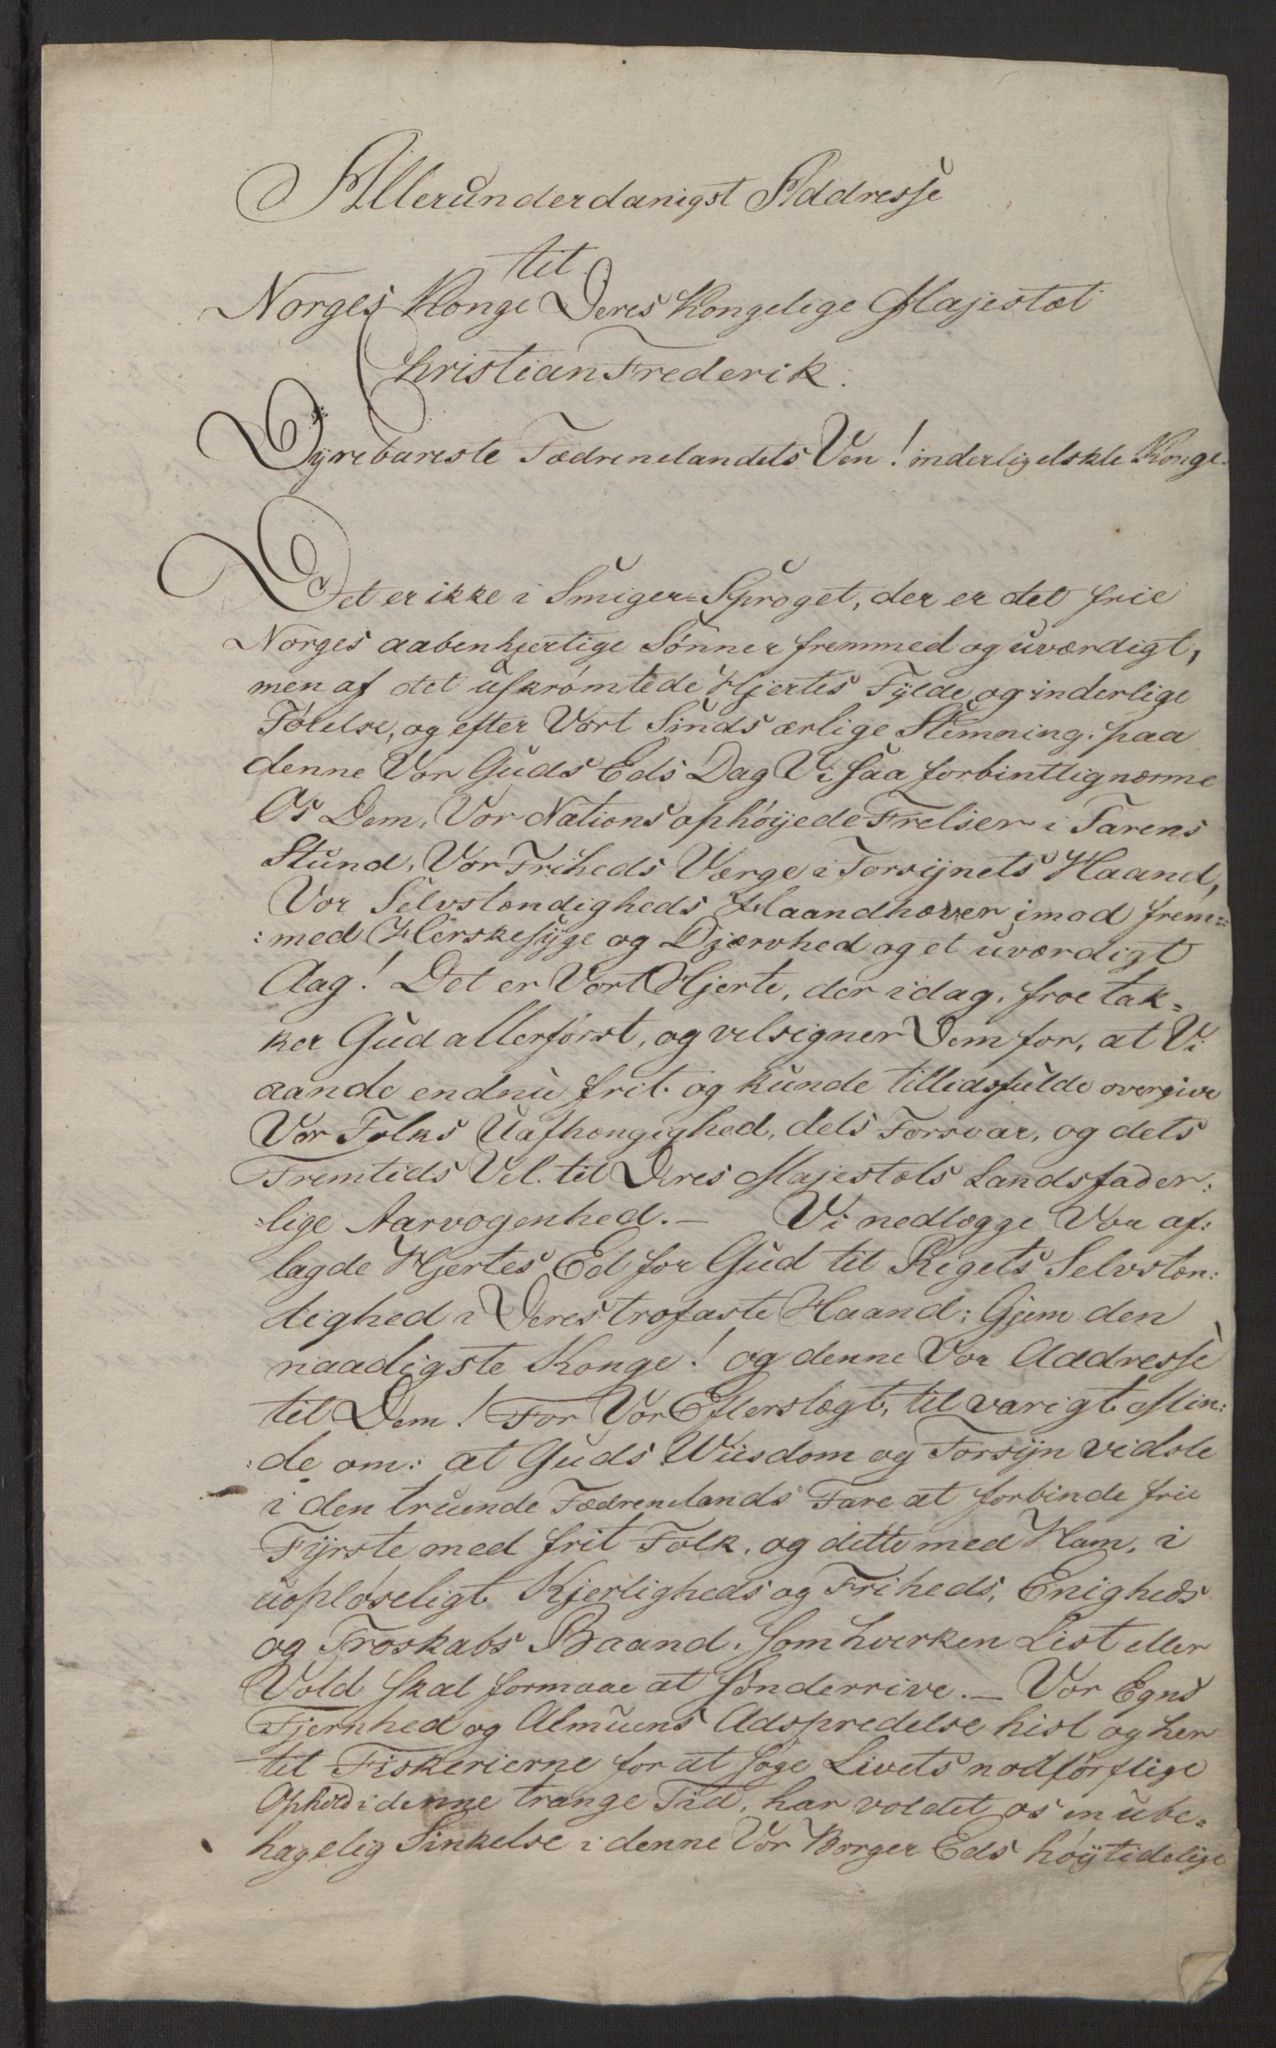 Allerunderdanigst Addresse
til
Norges Konge Deres Kongelige Majestæt
Christian Frederik.
Dyrebareste Fædrenelandets Ven! inderligelskte Konge.
Det er ikke i Smiger-Sproget, der er det frie
Norges aabenhjertige Sønner fremmed og uværdigt,
men af det uskrømtede Hjertes Fylde og inderlige
Følelse, og efter Vort Sinds ærlige Stemning, paa
denne Vor Guds Eds Dag Vi saa forbintlig nærme
Os Dem, Vor Nations ophøyede Frelser i Farens
Stund, Vor Friheds Værge i Forsynets Haand,
Vor Selvstændigheds Haandhæver imod frem=
:med Herskesyge og Djærvhed og et uværdigt
Aag! Det er Vort Hjerte, der idag, froe tak=
ker Gud allerførst, og velsigner Dem for, at Vi
aande endnu frit og kunde tillidsfulde overgive
Vor Folks Uafhængighed, dets Forsvar, og dets
Fremtids Vel til Deres Majestæts Landsfader:
:lige Aarvogenhed. — Vi nedlægge Vor af:
lagde Hjertes Ed for Gud til Rigets Selvstæn:
dighed i Deres trofaste Haand: Gjem den
naadigste Konge! og denne Vor Addresse
til Dem! For Vor Efterslægt, til varigt Min:
:de om: at Guds Viisdom og Forsyn vidste
i den truende Fædrenelands Fare at forbinde frie
Fyrste med frit Folk, og dette med Ham, i
uopløseligt Kjerligheds og Friheds, Enigheds
og Troskabs Baand, som hverken List eller
Vold skal formaae at sønderrive. — Vor Egns
Fjernhed og Almuens Adspredelse hist og her
til Fiskerierne for at søge Livets nødtørftige
Ophold i denne trange Tid, har voldet os en ube=
hagelig Sinkelse i denne Vor Borger Eds høytidelige